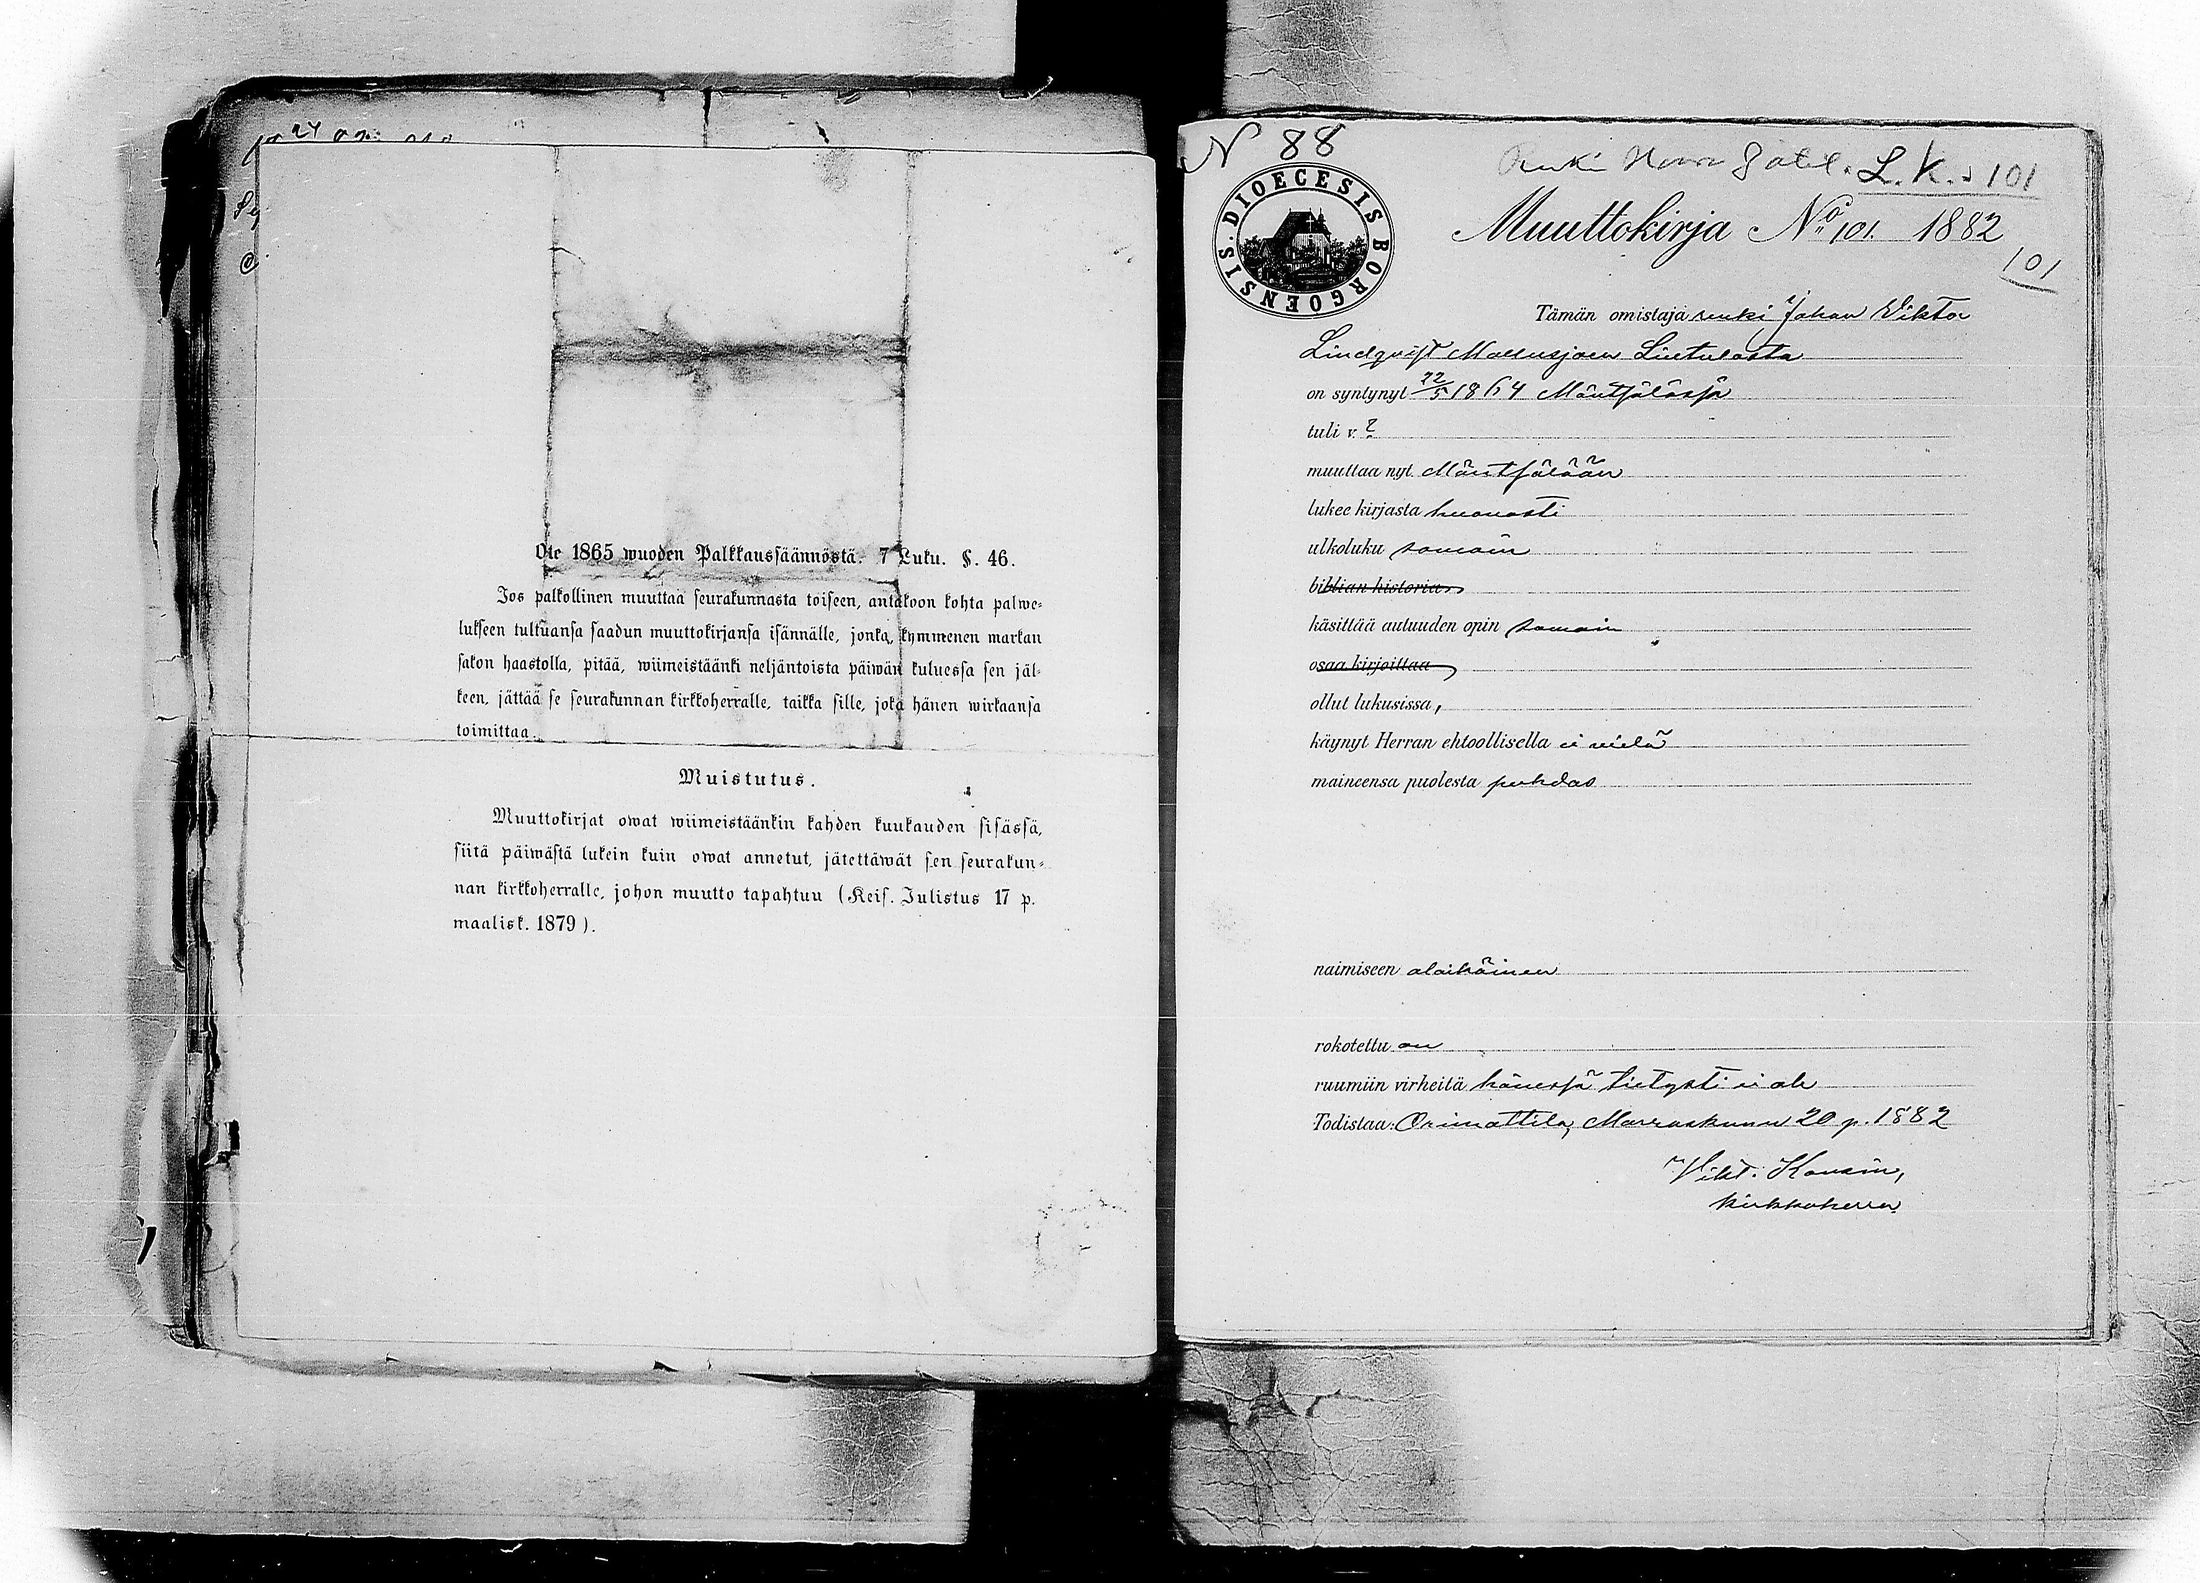 Ote 1865 wuoden Palkkaussäännöstä. 7 Luku. §. 46.
Jos palkollinen muuttaa seurakunnasta toiseen, antakoon kohta palwe-
lukseen tultuansa saadun muuttokirjansa isännälle, jonka, kymmenen markan
sakon haastolla, pitää, wiimeistäänki neljäntoista päiwän kuluessa sen jäl-
keen, jättää se seurakunnan kirkkoherralle, taikka sille, joka hänen wirkaansa
toimittaa.
Muistutus.
Muuttokirjat owat wiimeistäänkin kahden kuukauden sisässä,
siitä päiwästä lukein kuin owat annetut, jätettäwät sen seurakun-
nan kirkkoherralle, johon muutto tapahtuu (Keis. Julistus 17 p.
maalisk. 1879).
N 88
L. K. s 101
DIOECESIS BORGOENSIS.
Muuttokirja No 101. 1882
101
Tämän omistaja renki Johan Viktor
Lindqvist Mallusjoen Lintulasta
on syntynyt 22/5 1864 Mäntsälässä
tuli v. ?
muuttaa nyt Mäntsälään
lukee kirjasta huonosti
ulkoluku samoin
biblian historiaa
käsittää autuuden opin samoin
osaa kirjoittaa
ollut lukusissa,
käynyt Herran ehtoollisella ei vielä
maineensa puolesta puhdas
naimiseen alaikäinen
rokotettu on
ruumiin virheitä hänessä tietysti ei ole
Todistaa: Orimattila, Marraskuun 20 p. 1882
Vikt.
kirkkoherra